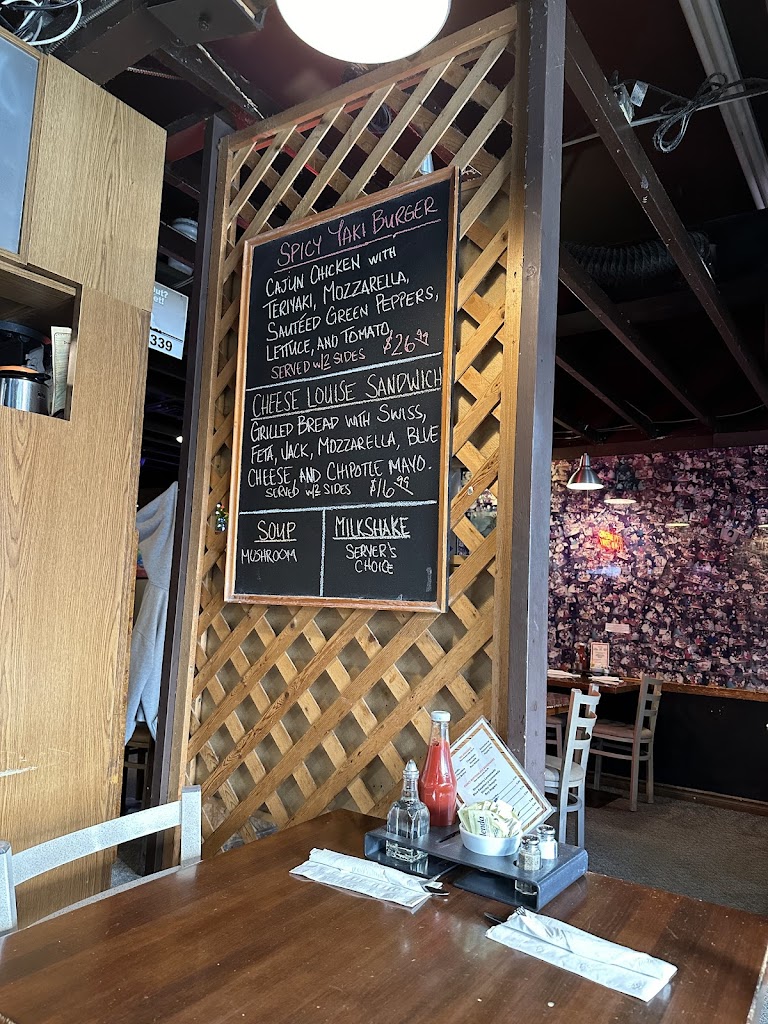 SPICY YAKI BURGER
CAJUN CHICKEN WITH
TERIYAKI, MOZZARELLA,
SAUTÉED GREEN PEPPERS,
LETTUCE, AND TOMATO,
SERVED W/2 SIDES $26.99
CHEESE LOUISE SANDWICH
GRILLED BREAD WITH SWISS,
FETA, JACK, MOZZARELLA, BLUE
CHEESE, AND CHIPOTLE MAYO.
SERVED W/2 SIDES $16.99
SOUP
MUSHROOM
MILKSHAKE
SERVER'S
CHOICE
339